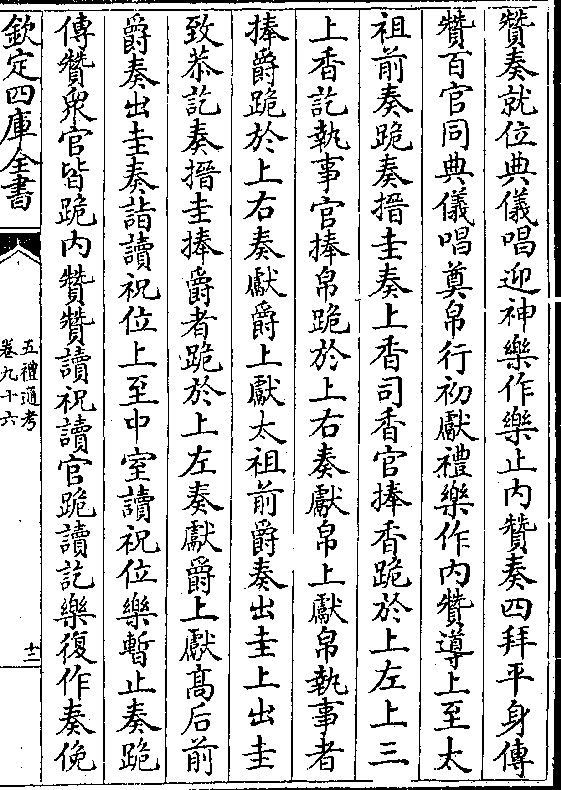 贊奏就位典儀唱迎神樂作樂止内贊奏四拜平身傳
贊百官同典儀唱奠帛行初獻禮樂作内贊導上至太
祖前奏跪奏搢圭奏上香司香官捧香跪於上左上三
上香訖執事官捧帛跪於上右奏獻帛上獻帛執事者
捧爵跪於上右奏獻爵上獻太祖前爵奏出圭上出圭
致恭訖奏搢圭捧爵者跪於上左奏獻爵上獻高后前
爵奏出圭奏詣讀祝位上至中室讀祝位樂暫止奏跪
傳贊衆官皆跪内贊贊讀祝讀官跪讀訖樂復作奏俛
欽定四庫全書
五禮通考
卷九十六
十二